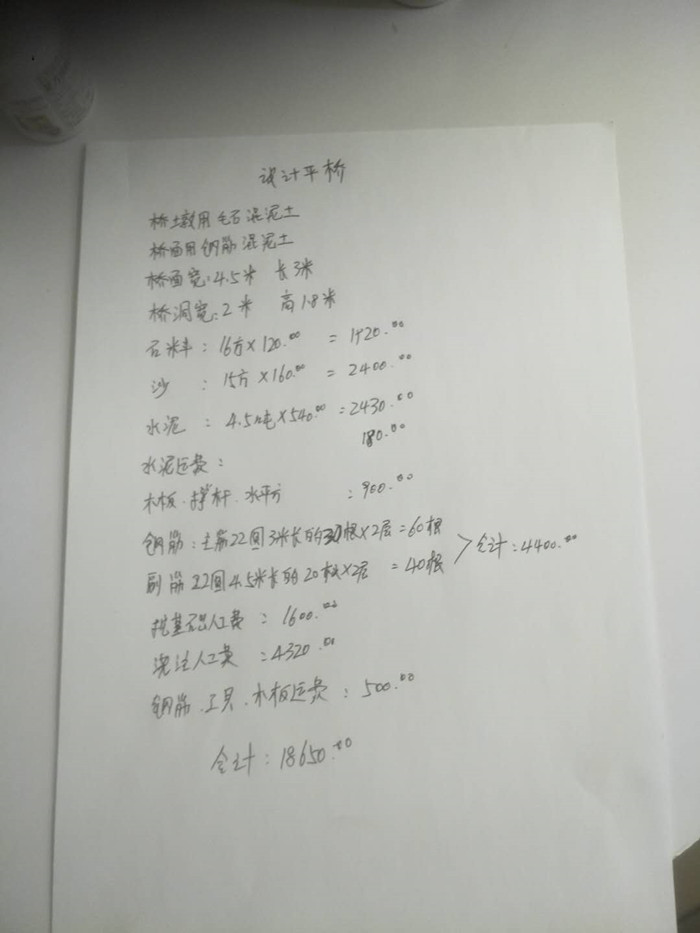 设计平桥
桥土敦用毛石混泥土
桥面用钢筋混泥土
桥面宽:4.5米 长3米
桥洞宽:2米 高1.8米
石米丰:16方×120.00 =1920.00
沙:15方×160.00 =2400.00
水泥:4.5吨×540.00=2430.00
水泥运费: 180.00
木板.撑杆.水平方:900.00
钢筋:主筋22圆3米长的30根×2层=60根
副筋22圆4.5米长的20根×2层 =40根 >合计:4400.00
挖基础人工费:1600.00
浇注人工费:4320.00
钢筋.工具.木板运费:500.00
合计:18650.00